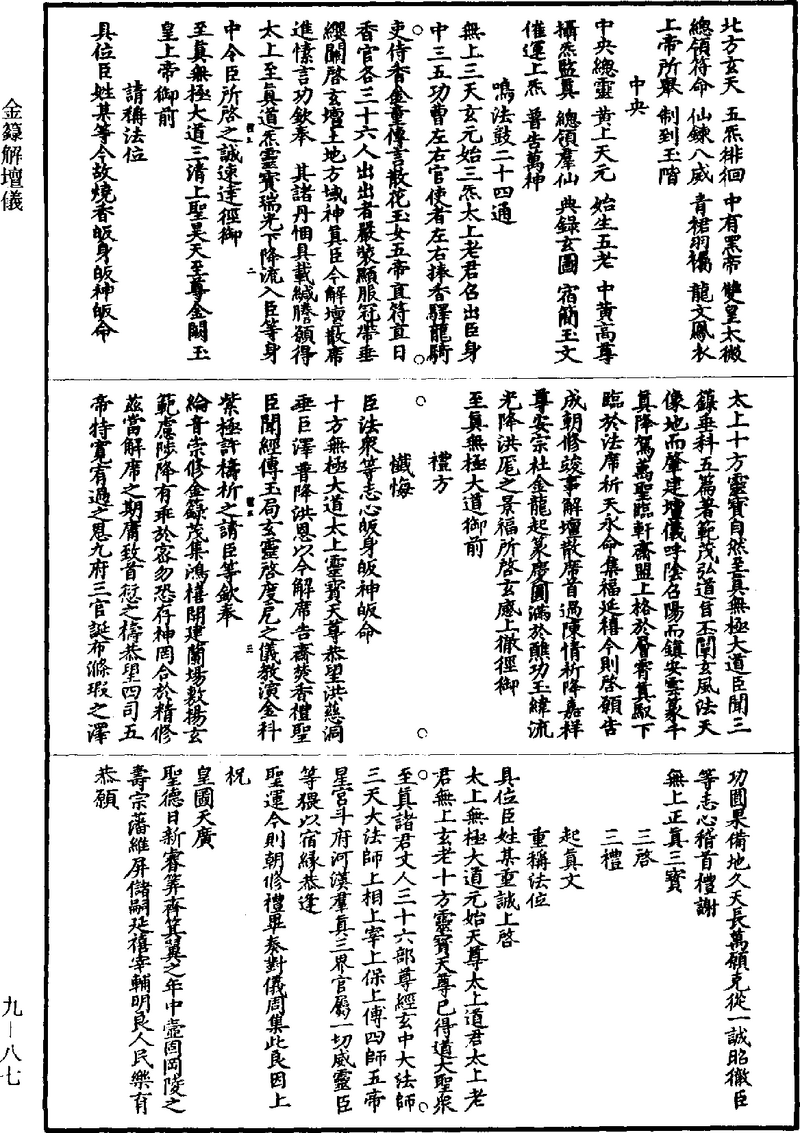 北方玄天　五炁徘徊　中有黑帝　雙皇太微
總領符命　仙錬八威　青裙羽襡　龍文鳳衣
上帝所舉　制到玉階
中央
中央總靈　黄上天元　始生五老　中黄高尊
攝炁監真　總領羣仙　典錄玄圖　宿簡玉文
催運上炁　普告萬神
鳴法鼓二十四通
無上三天玄元始三炁太上老君召出臣身
中三五功曹左右官使者左右捧香驛龍騎
吏侍香金童傳言散花玉女五帝直符直日
香官各三十六人出出者嚴裝顯服冠帶垂
纓關啓玄壇土地方域神真臣今解壇散席
進愫言功欽奉　其諸丹悃具載緘謄願得
太上至真道炁靈寶瑞光下降流入臣等身
中令臣所啓之誠速達徑御
至真無極大道三清上聖昊天至尊金闕玉
皇上帝御前
請稱法位
具位臣姓某等今故燒香皈身皈神皈命
太上十方靈寶自然至真無極大道臣聞三
籙垂科五篇著範茂弘道旨丕闡玄風法天
像地而肇建壇儀呼陰召陽而鎮安雲篆千
真降駕萬聖臨軒齋盟上格於層霄真馭下
臨於法席祈天永命集福延禧今則啓願告
成朝修竣事解壇散席首過陳情祈降嘉祥
尊安宗社金龍起篆慶圓滿於醮功玉緯流
光降洪厖之景福所啓玄感上徹徑御
至真無極大道御前
禮方
懺悔
臣法衆等志心皈身皈神皈命
十方無極大道太上靈寶天尊恭望洪慈洞
垂巨澤普降洪恩以今解席告齋焚香禮聖
臣聞經傳玉局玄靈啓度厄之儀教演金科
紫極許禱祈之請臣等欽奉
綸音崇修金籙茂集鴻禧開建蘭場敷揚玄
範慮陟降有乖於恪勿恐存神罔合於精修
茲當解席之期庸致首愆之禱恭望四司五
帝特寬宥過之恩九府三官誕布滌瑕之澤
功圓果備地久天長萬願克從一誠昭徹臣
等志心稽首禮謝
無上正真三寶
三啓
三禮
起真文
重稱法位
具位臣姓某重誠上啓
太上無極大道元始天尊太上道君太上老
君無上玄老十方靈寶天尊已得道大聖衆
至真諸君丈人三十六部尊經玄中大法師
三天大法師上相上宰上保上傅四師五帝
星宮斗府河漢羣真三界官屬一切威靈臣
等猥以宿緣恭逢
聖運今則朝修禮畢奏對儀周集此良因上
祝
皇圖天廣
聖德日新睿筭齊箕翼之年中壼固岡陵之
壽宗藩維屏儲嗣延禧宰輔明良人民樂育
恭願
金籙解壇儀
九—八七